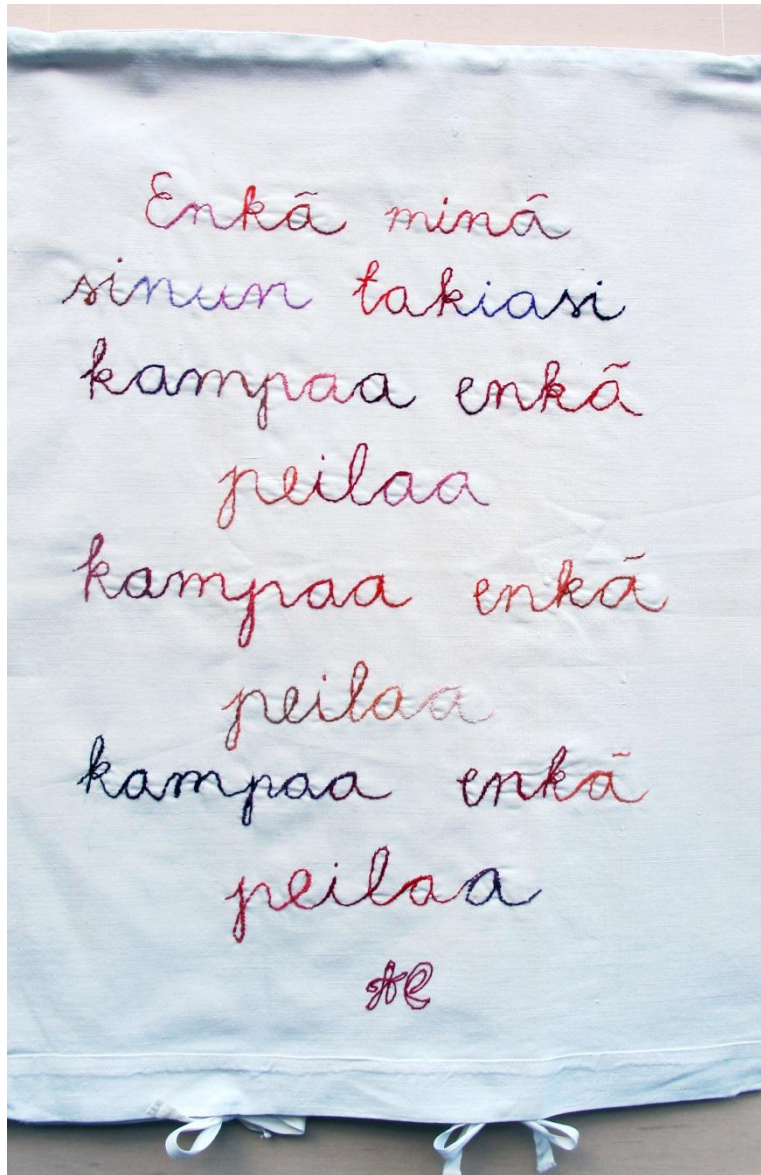 Enkä minä
sinun takiasi
kampaa enkä
peilaa
kampaa enkä
peilaa
kampaa enkä
peilaa